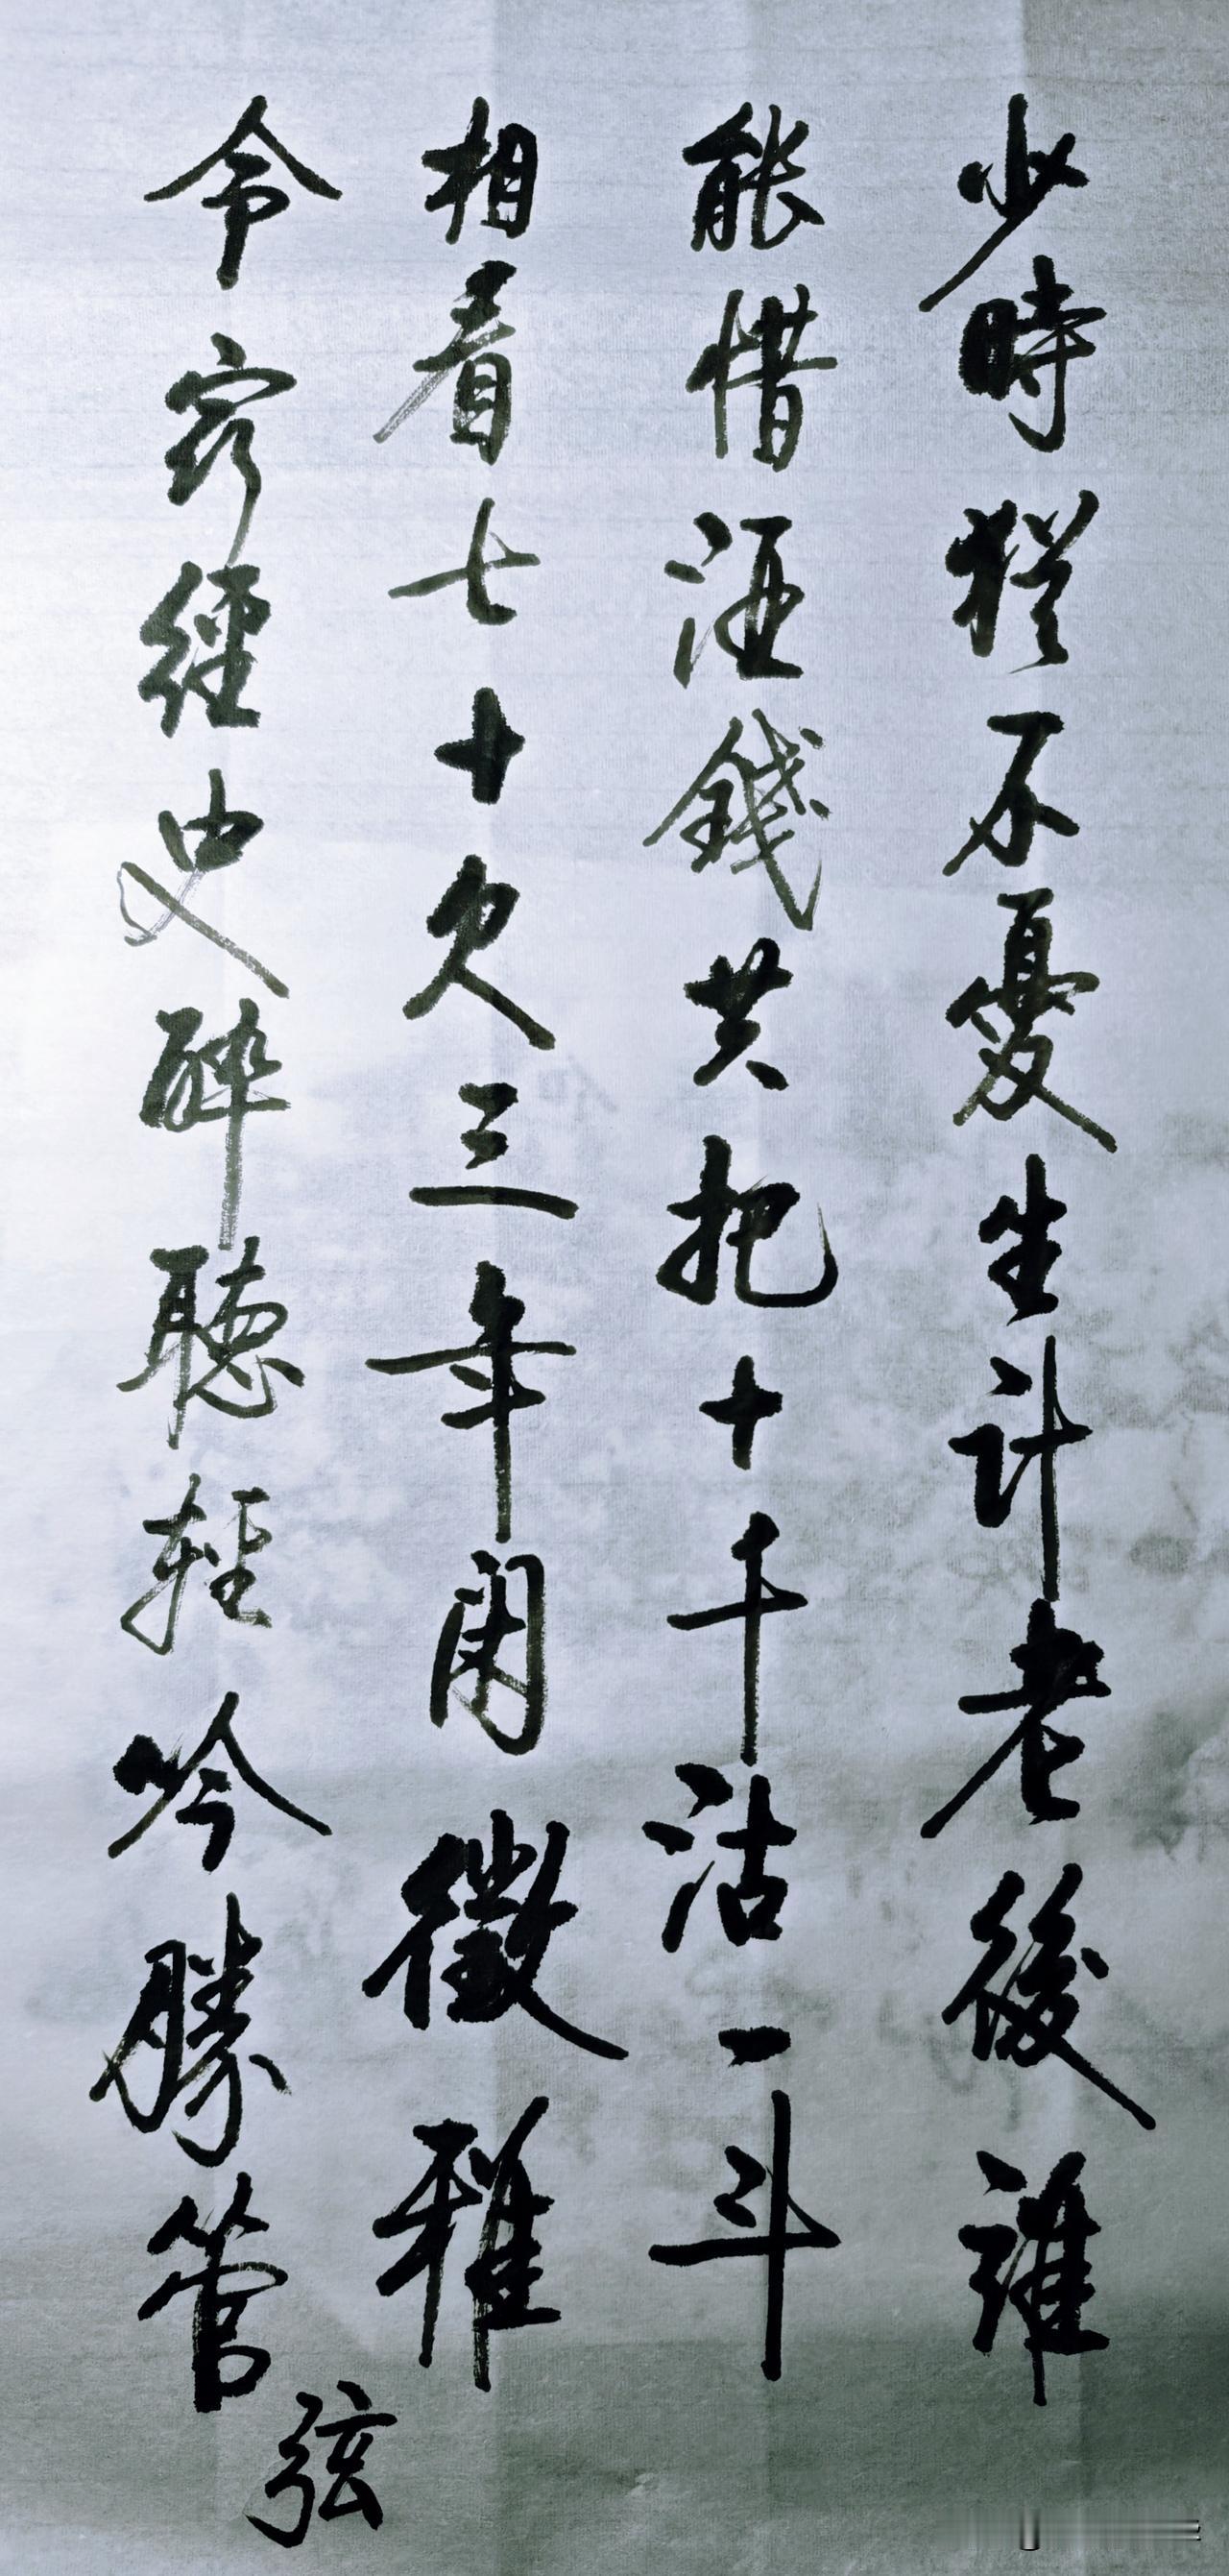 少時猶不憂生計老後誰
能惜酒錢共把十千沽一斗
相看七十欠三年閑徵雅
令窮經史醉聽輕吟勝管
弦